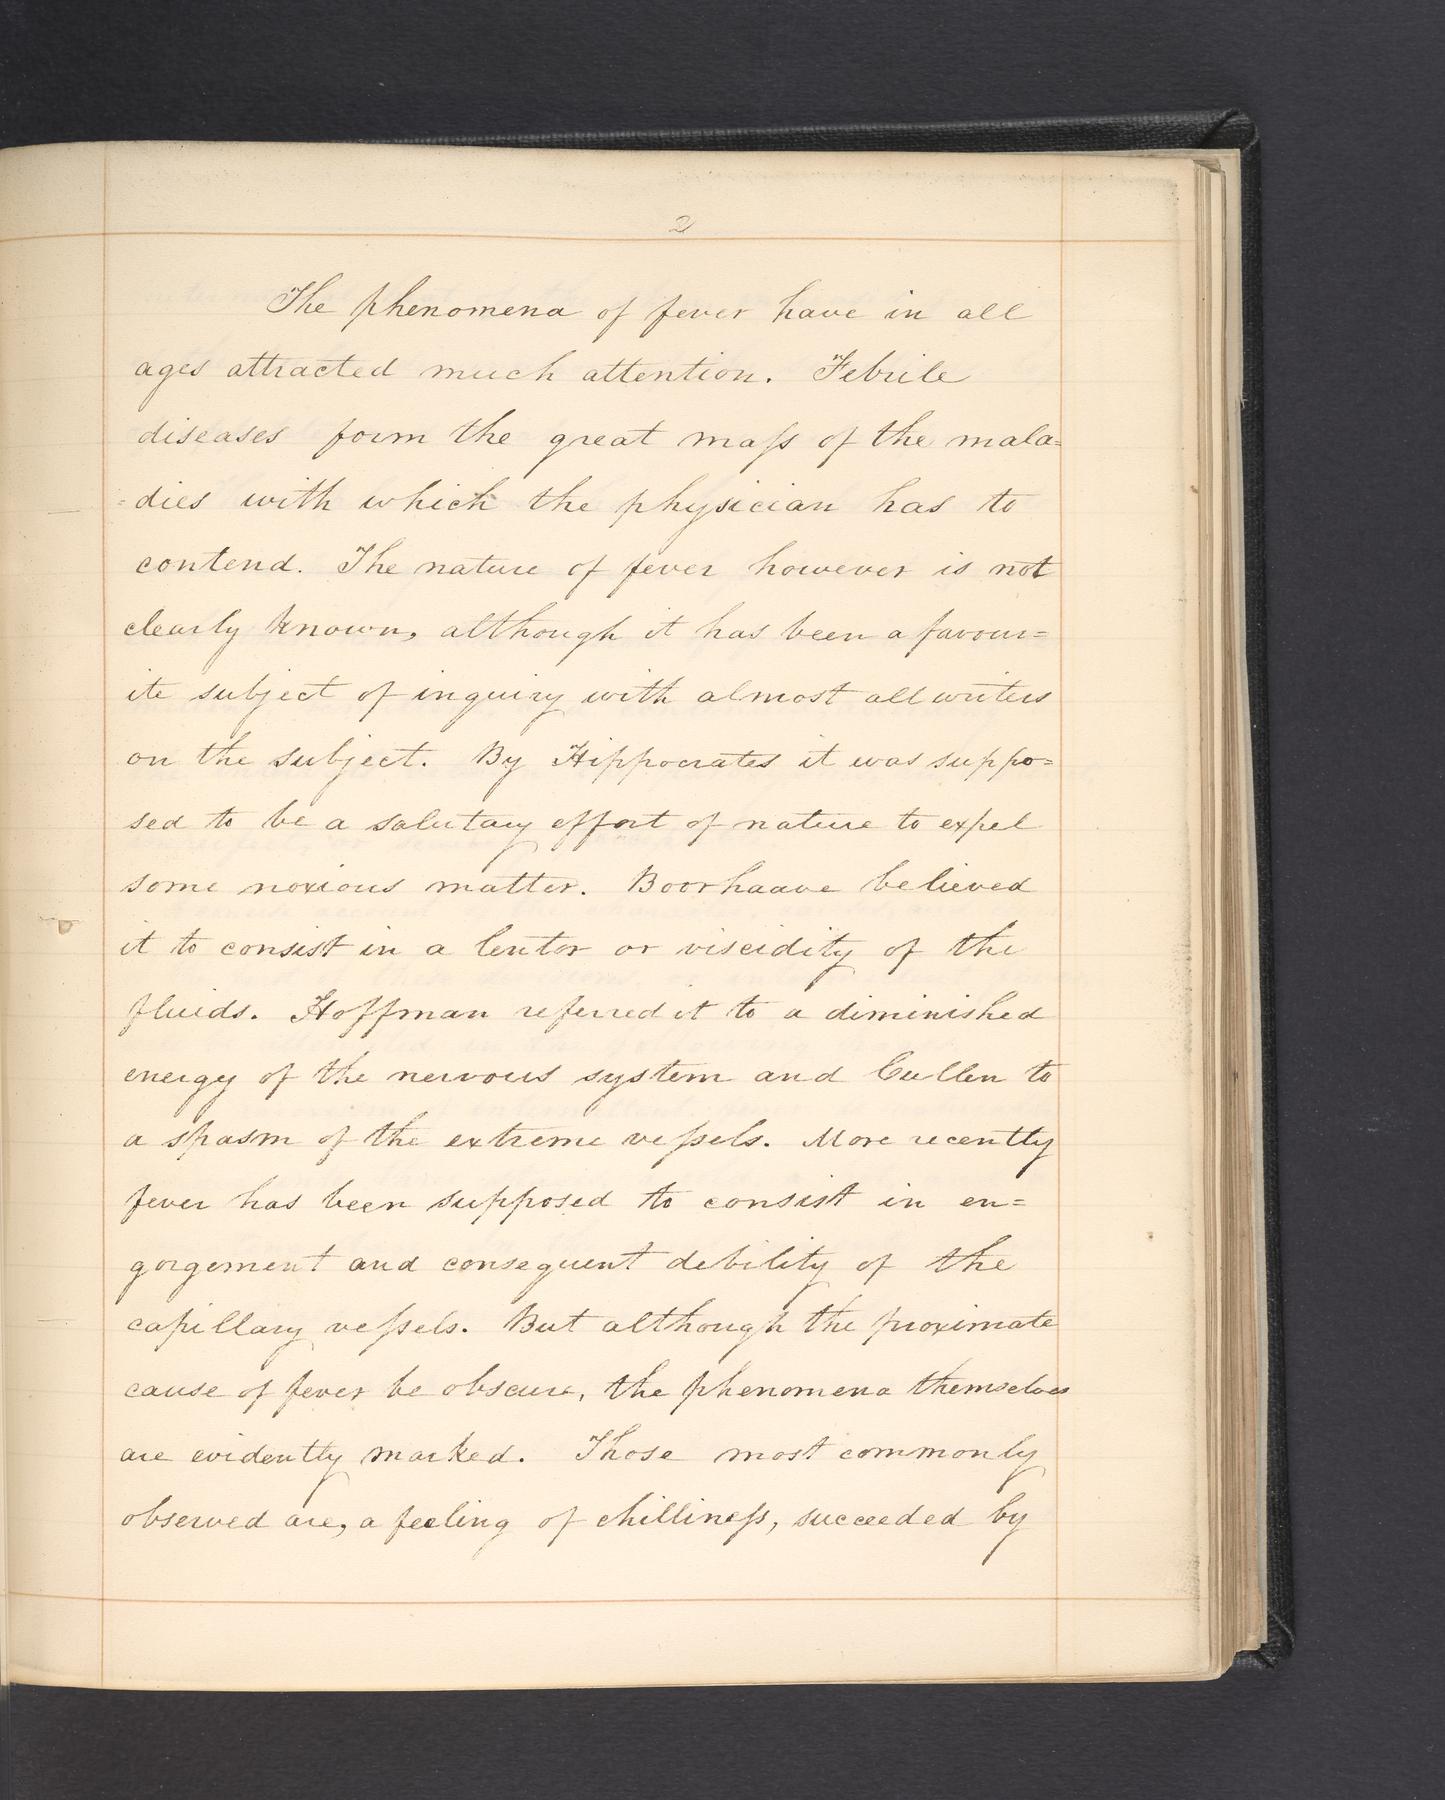 2
The phenomena of fever have in all
ages attracted much attention. Febrile
diseases form the great maſs of the mala=
=dies with which the physician has to
contend. The nature of fever however is not
clearly known, although it has been a favour=
ite subject of inquiry with almost all writers
on the subject. By Hippocrates it was suppo=
sed to be a salutary effort of nature to expel
some noxious matter. Boorhaave believed
it to consist in a lentor or viscidity of the
fluids. Hoffman referred it to a diminished
energy of the nervous system and Cullen to
a spasm of the extreme veſsels. More recently
fever has been supposed to consist in en=
gorgement and consequent debility of the
capillary veſsels. But although the proximate
cause of fever be obscure, the phenomena themselves
are evidently marked. Those most commonly
observed are, a feeling of chillineſs, succeeded by